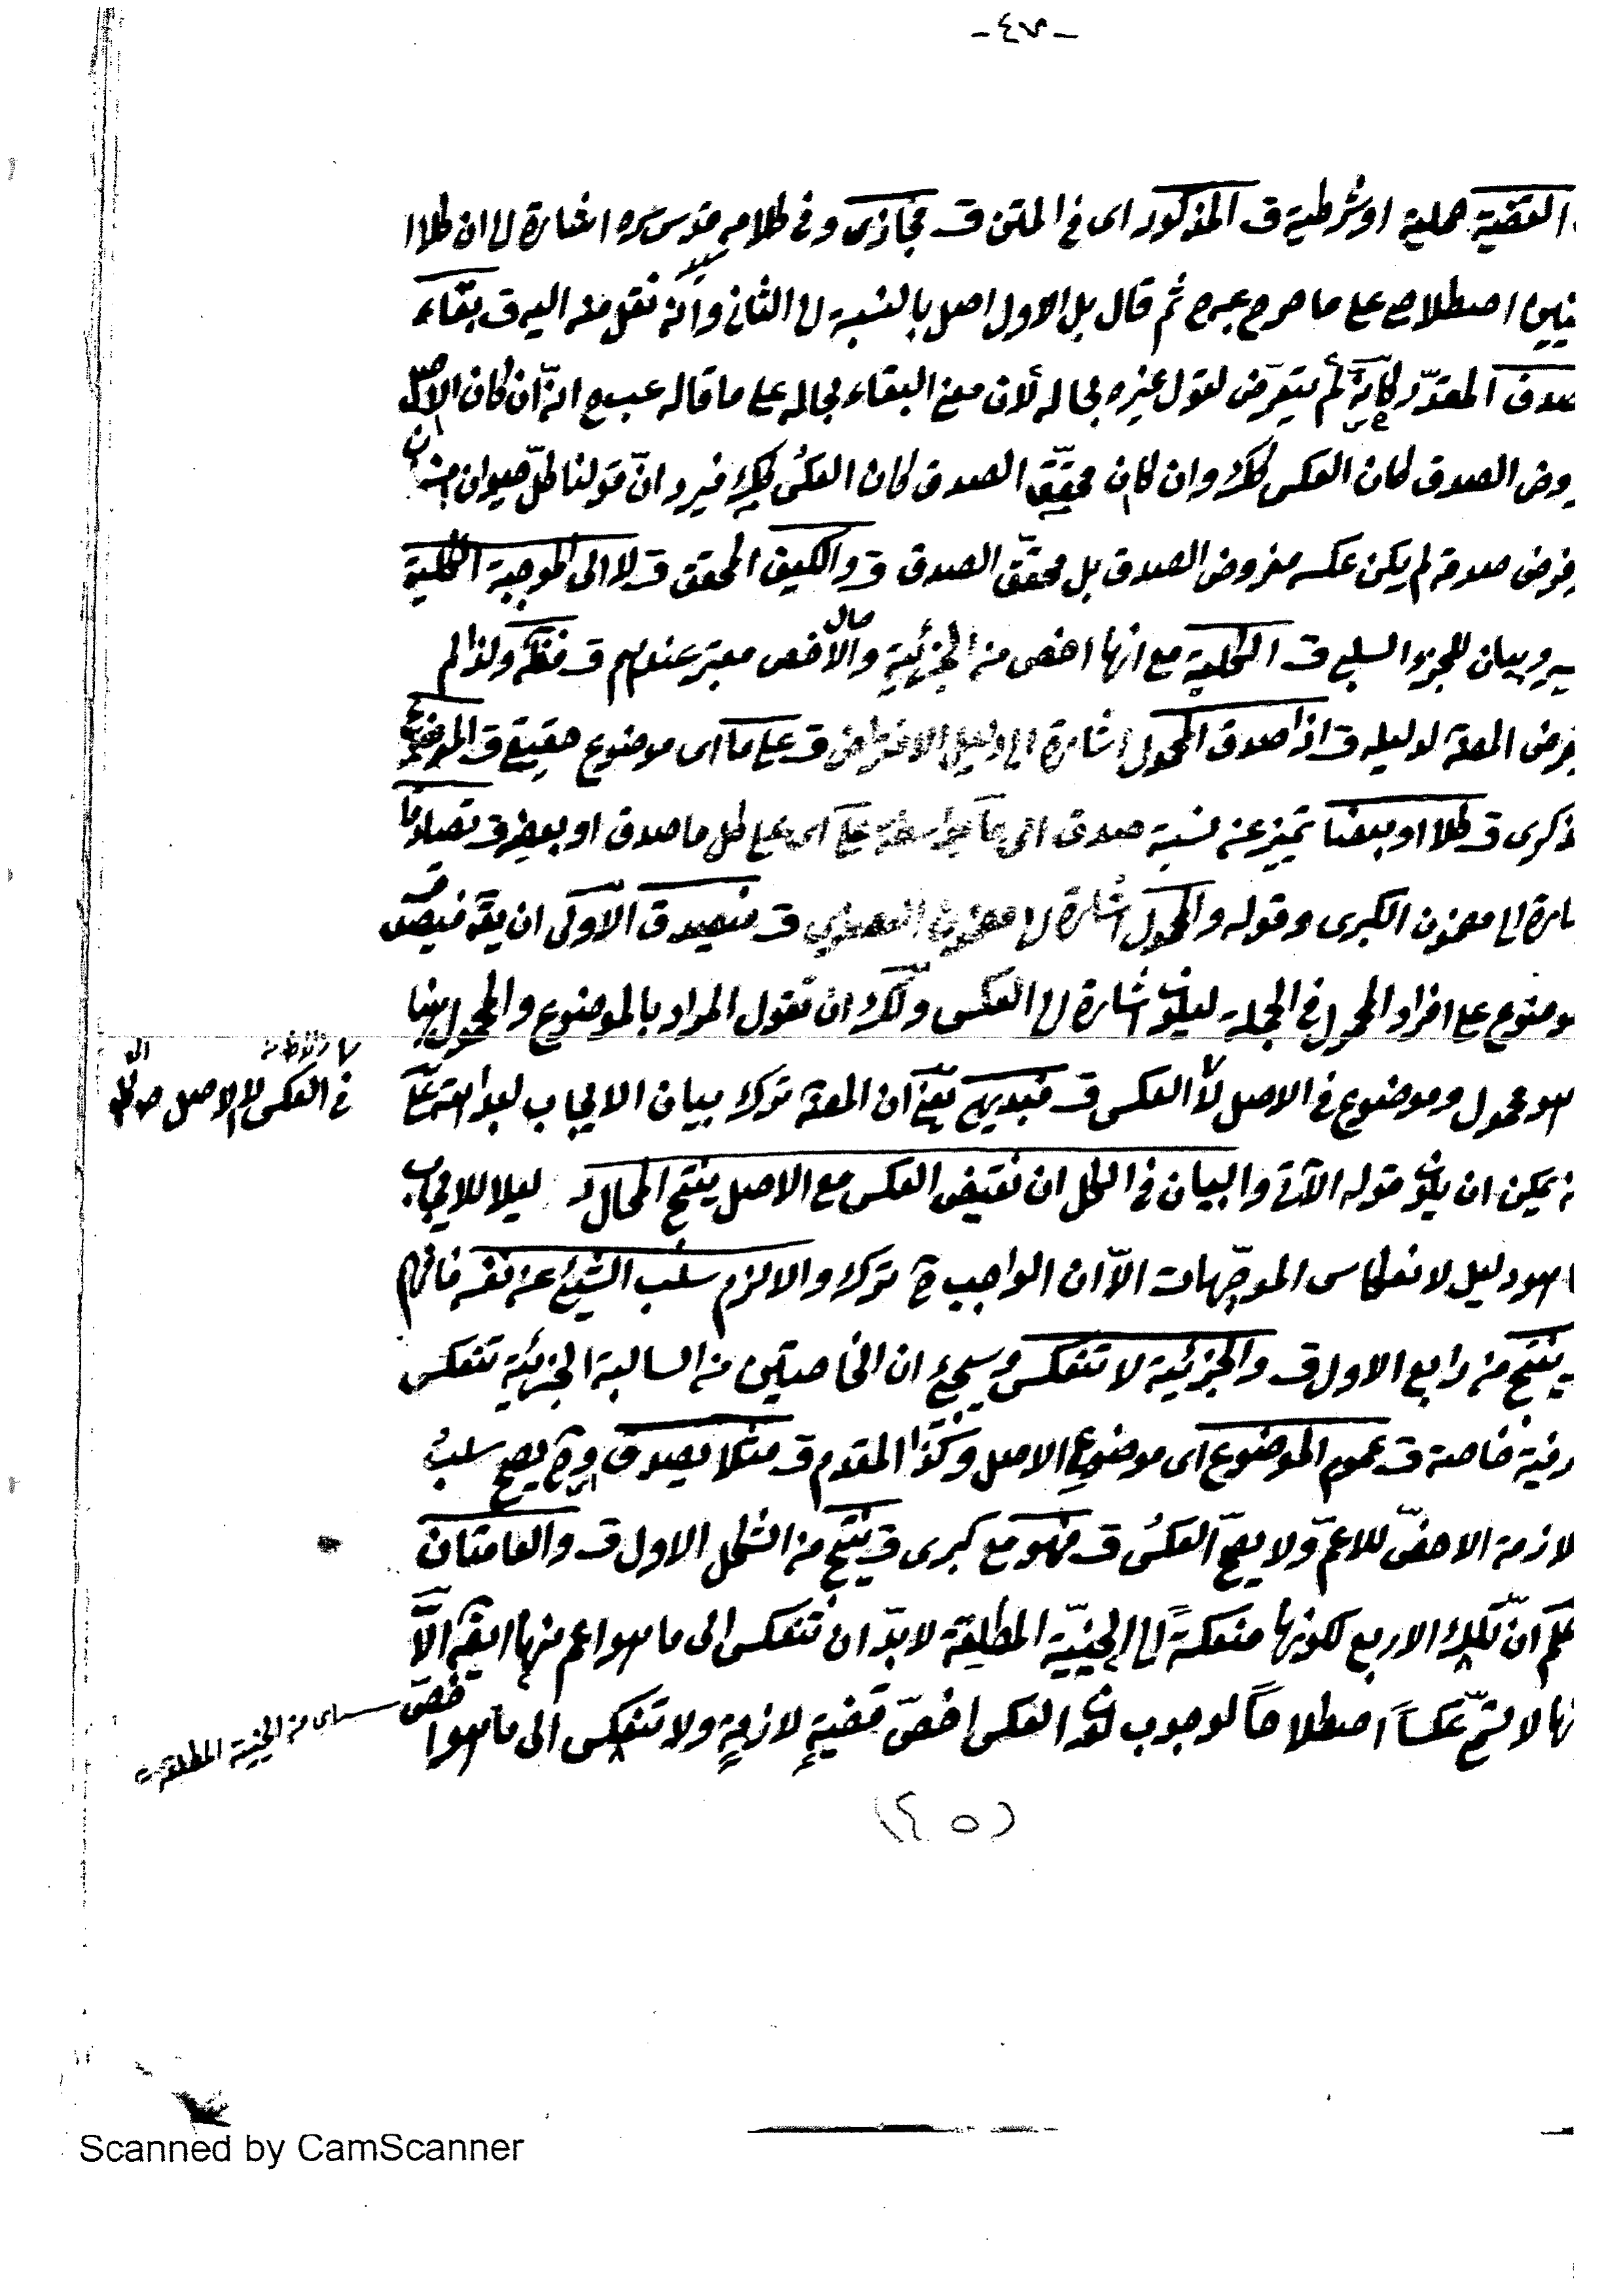 -٤٧-
القضية حملية او شرطية ق المذكور اى في المتن ق مجازى وفى كلامه قدس سره اشارة الى ان كلا ا
اصطلاحى على ما صرح عبدح ثم قال بل الاول اصل بالنسبة الى الثانى وانه نقل منه اليه ق بقاء
صدق المقدر كانه لم يتعرض لقول غيره بحاله لأن معنى البقاء بحاله على ما قاله عبدح انه ان كان الاصل
روض الصدق كان العكس كك وان كان محقق الصدق كان العكس كك فيرد ان قولنا كل حيوان انسان
فرض صدقه لم يكن عكسه مفروض الصدق بل محقق الصدق ق والكيف المحقق ق لا الى الموجبة الكلية
وبيان للجزء السلبى ق الكلية مع انها اخص من الجزئية والاخص معتبر عندهم ق ولذا لم
المصـ لدليله ق اذا صدق المحمول اشارة الى دليل الافتراض ق على ما اى موضوع حقيقى ق الموضوع
ذكرى ق كلا او بعضا تميز عن نسبة صدق الى على اى على كل ما صدق او بعضه ق تصادقا
ارة الى مضمون الكبرى وقوله والمحمول اشارة الى مضمون الصغرى ق فيصدق الاولى ان يقـ فيصدق
موضوع على افراد المحمول فى الجملة ليكون اشارة الى العكس ولك ان تقول المراد بالموضوع والمحمول هنا
هو محمول وموضوع فى الاصل لا العكس ق فبديهى يعنى ان المصـ ترك بيان الايجاب لبداهته على
فى العكس لا الاصل
ـه يمكن ان يكون قوله الآتى والبيان فى الكل ان نقيض العكس مع الاصل ينتج المحال دليلا للايجاب
هو دليل لانعكاس الموجهات الا ان الواجب ح تركه والا لزم سلب الشيئ عن نفسه فافهم
ينتج من رابع الاول ق والجزئية لا تنعكس وسيجئ ان الخاصتين من السالبة الجزئية تنعكس
رفية خاصة ق عموم الموضوع اى موضوع الاصل وكذا المقدم ق مثلا يصدق وح يصح سلب
لازمة الاخص للاعم ولا يصح العكس ق فهو مع كبرى ق ينتج من الشكل الاول ق والعامتان
ـلم ان تلك الاربع لكونها منعكسة الى الحينية المطلقة لا بد ان تنعكس الى ما هو اعم منها ايضا الا
ـها لا يسمى عكسا اصطلاحا لوجوب كون العكس اخص قضية لازمة ولا تنعكس الى ما هو اخص
اى من الحينية المطلقة
(٤٥)
Scanned by CamScanner